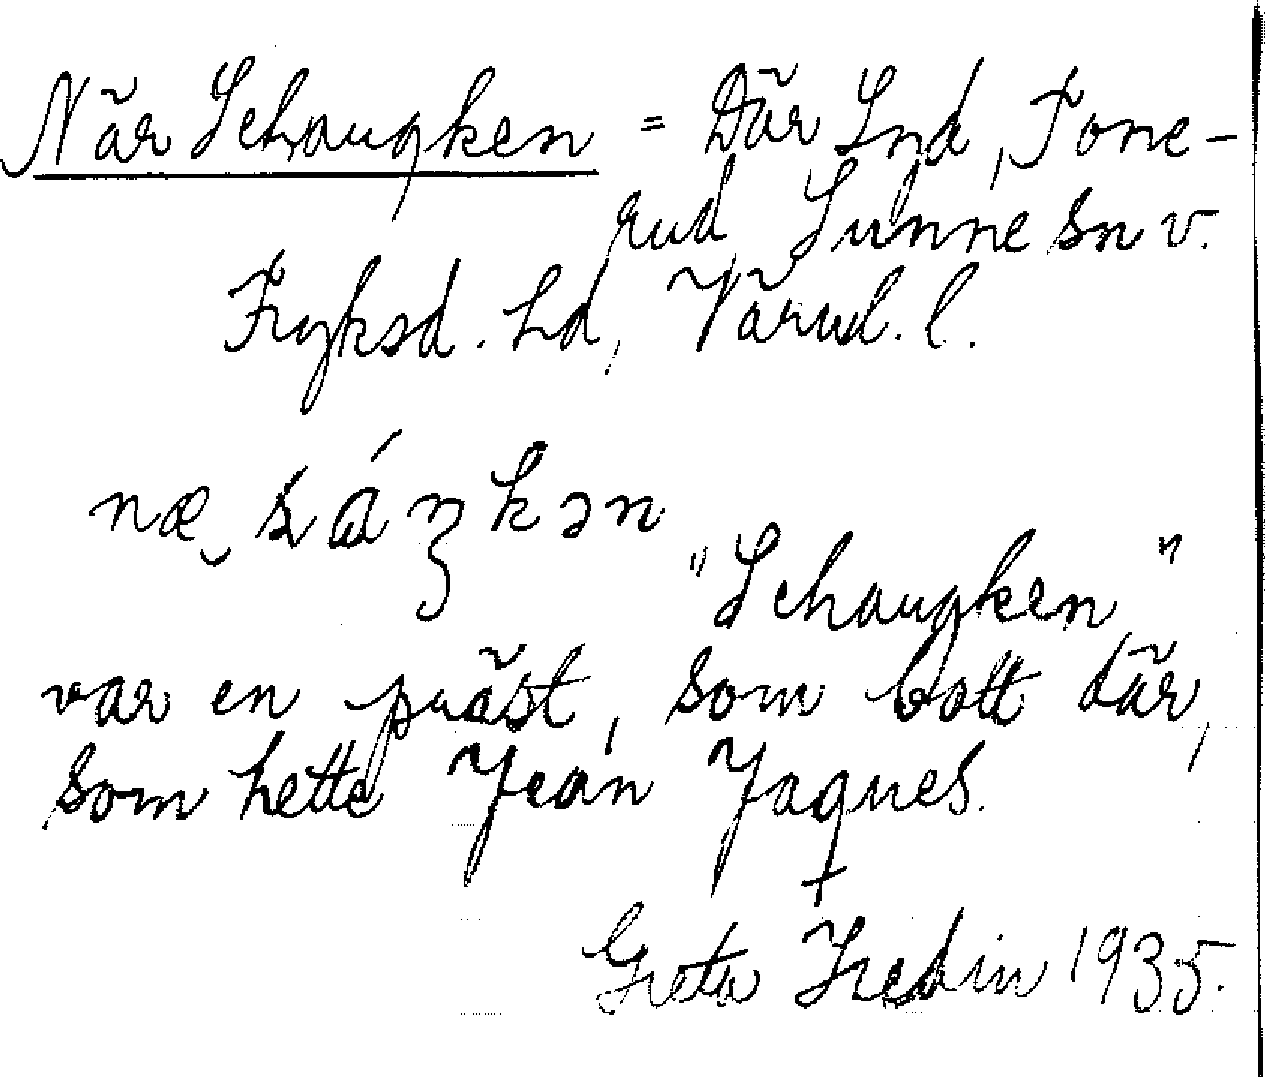 När Schaugken = Där Snd, Tone-
rud Sunne sn v.
Fryksd. hd, Värml. l.
"Schaugken"
var en präst, som bott där,
som hette Jean Jaques.
Greta Hedin 1935.